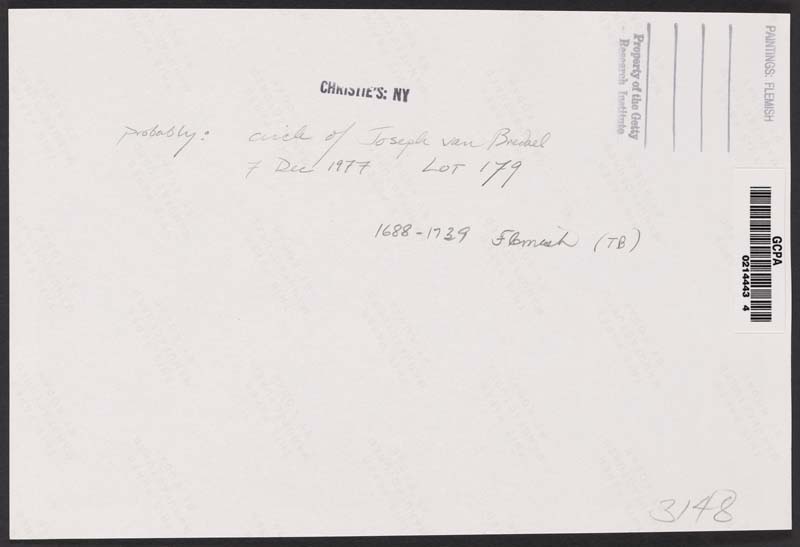 CHRISTIE'S: NY
probably: circle of Joseph van Bredael
7 Dec 1977 LOT 179
1688-1739 Flemish (TB)
Property of the Getty
Research Institute
PAINTINGS: FLEMISH
GCPA
0214443 4
3148